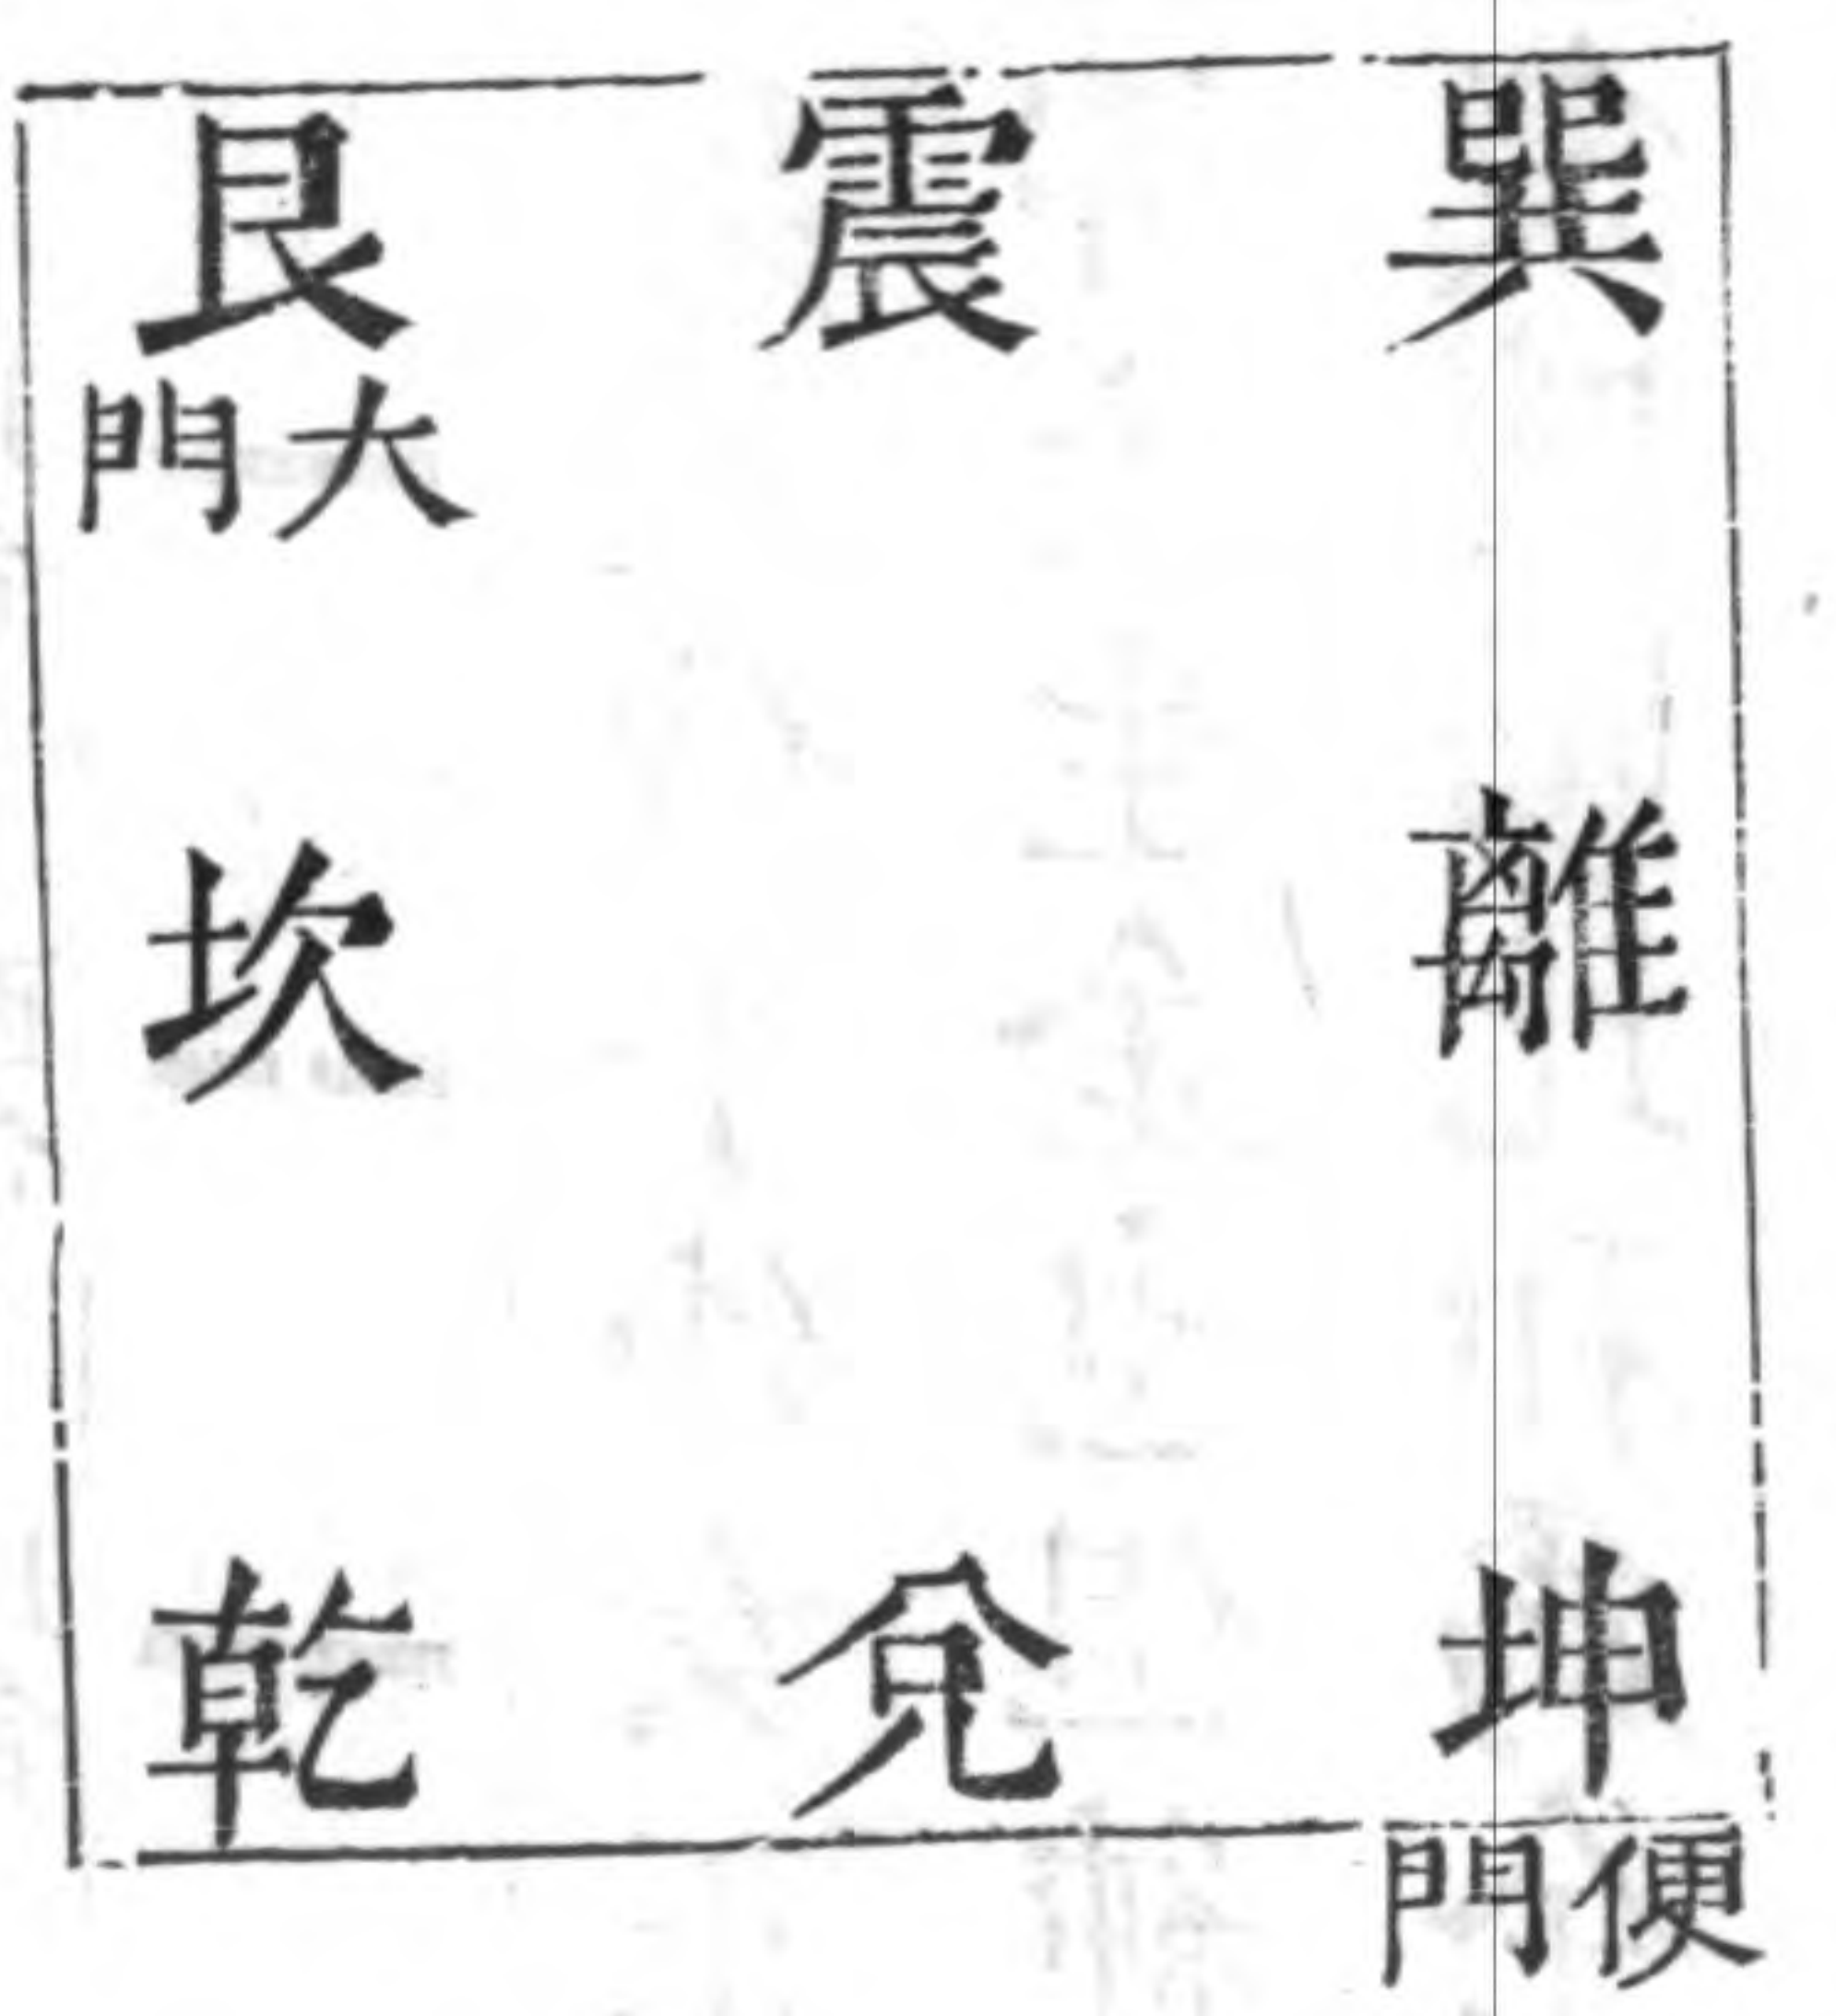 巽
震
艮
大門
離
坎
坤
兌
乾
便門